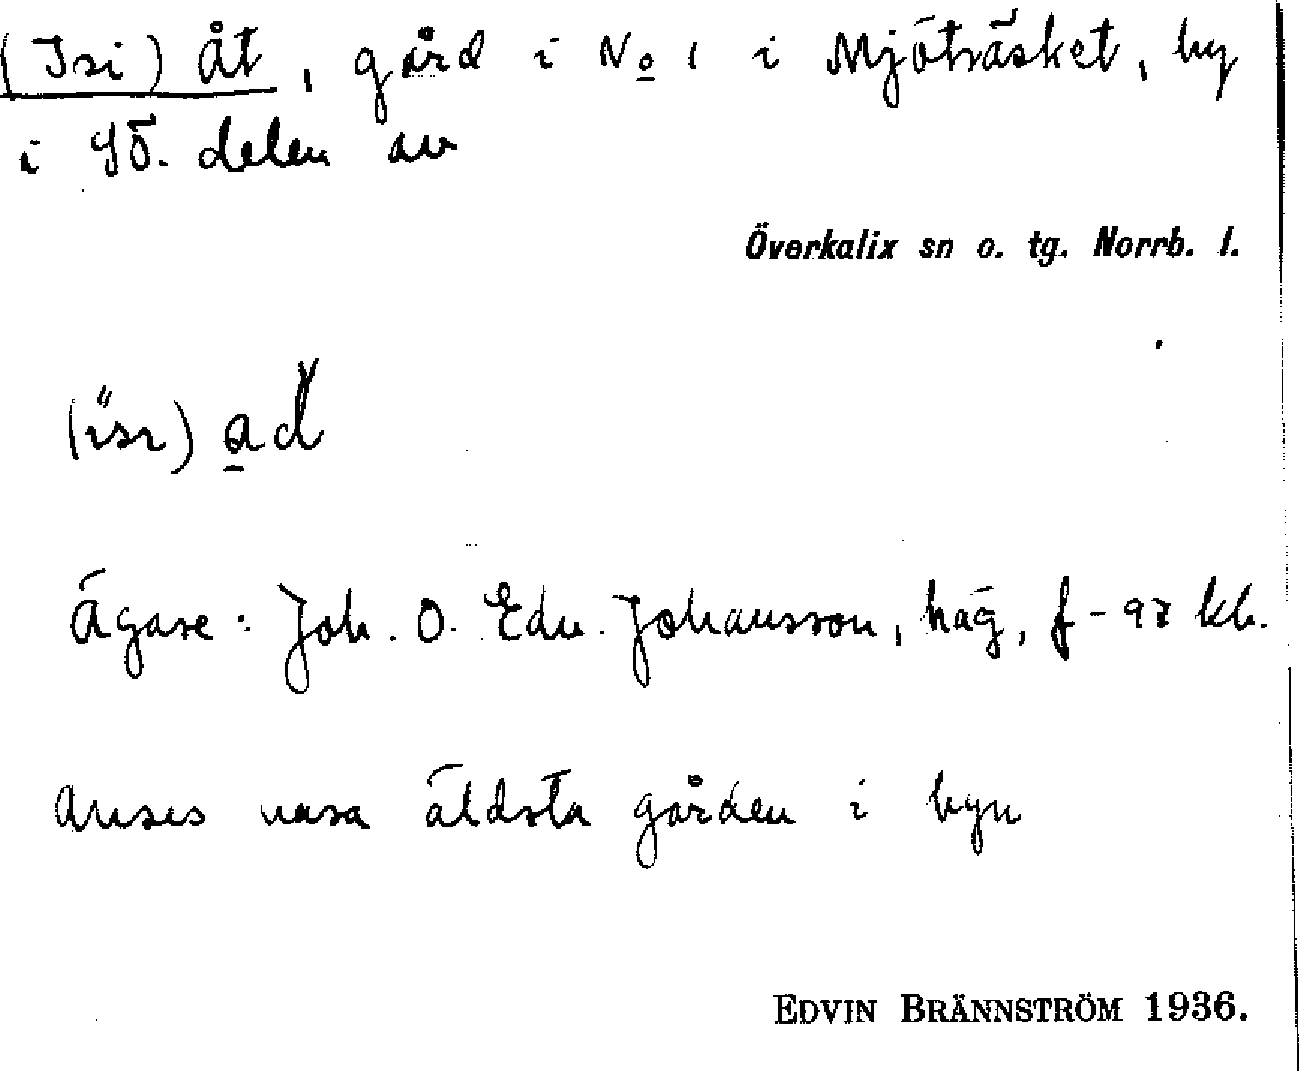 (Isi) åt, gård i No 1 i Mjöträsket, by
i SÖ. delen av
Överkalix sn o. tg. Norrb. l.
Ägare: Joh. O. Edv. Johansson, häg, f-97 kh.
Anses vara äldsta gården i byn
EDVIN BRÄNNSTRÖM 1936.